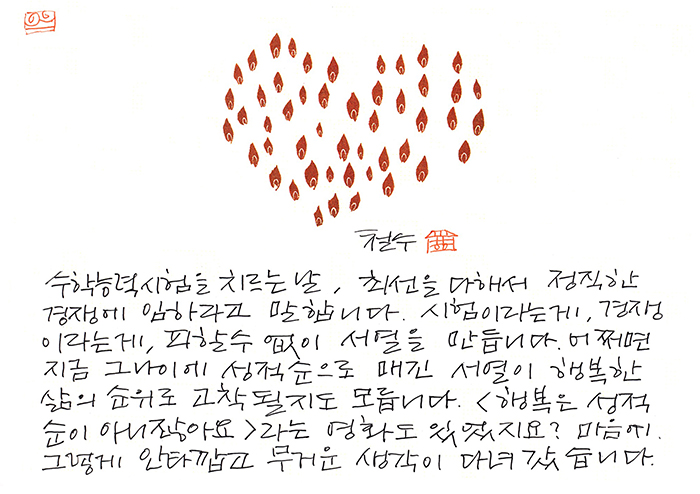 철수
수학능력시험을 치르는 날, 최선을 다해서 정직한
경쟁에 임하라고 말합니다. 시험이라는게, 경쟁
이라는게, 피할수 없이 서열을 만듭니다. 어쩌면
지금 그나이에 성적순으로 매긴 서열이 행복한
삶의 순위로 고착될지도 모릅니다. <행복은 성적
순이 아니잖아요>라는 영화도 있었지요? 마음에
그렇게 안타깝고 무거운 생각이 다녀 갔습니다.